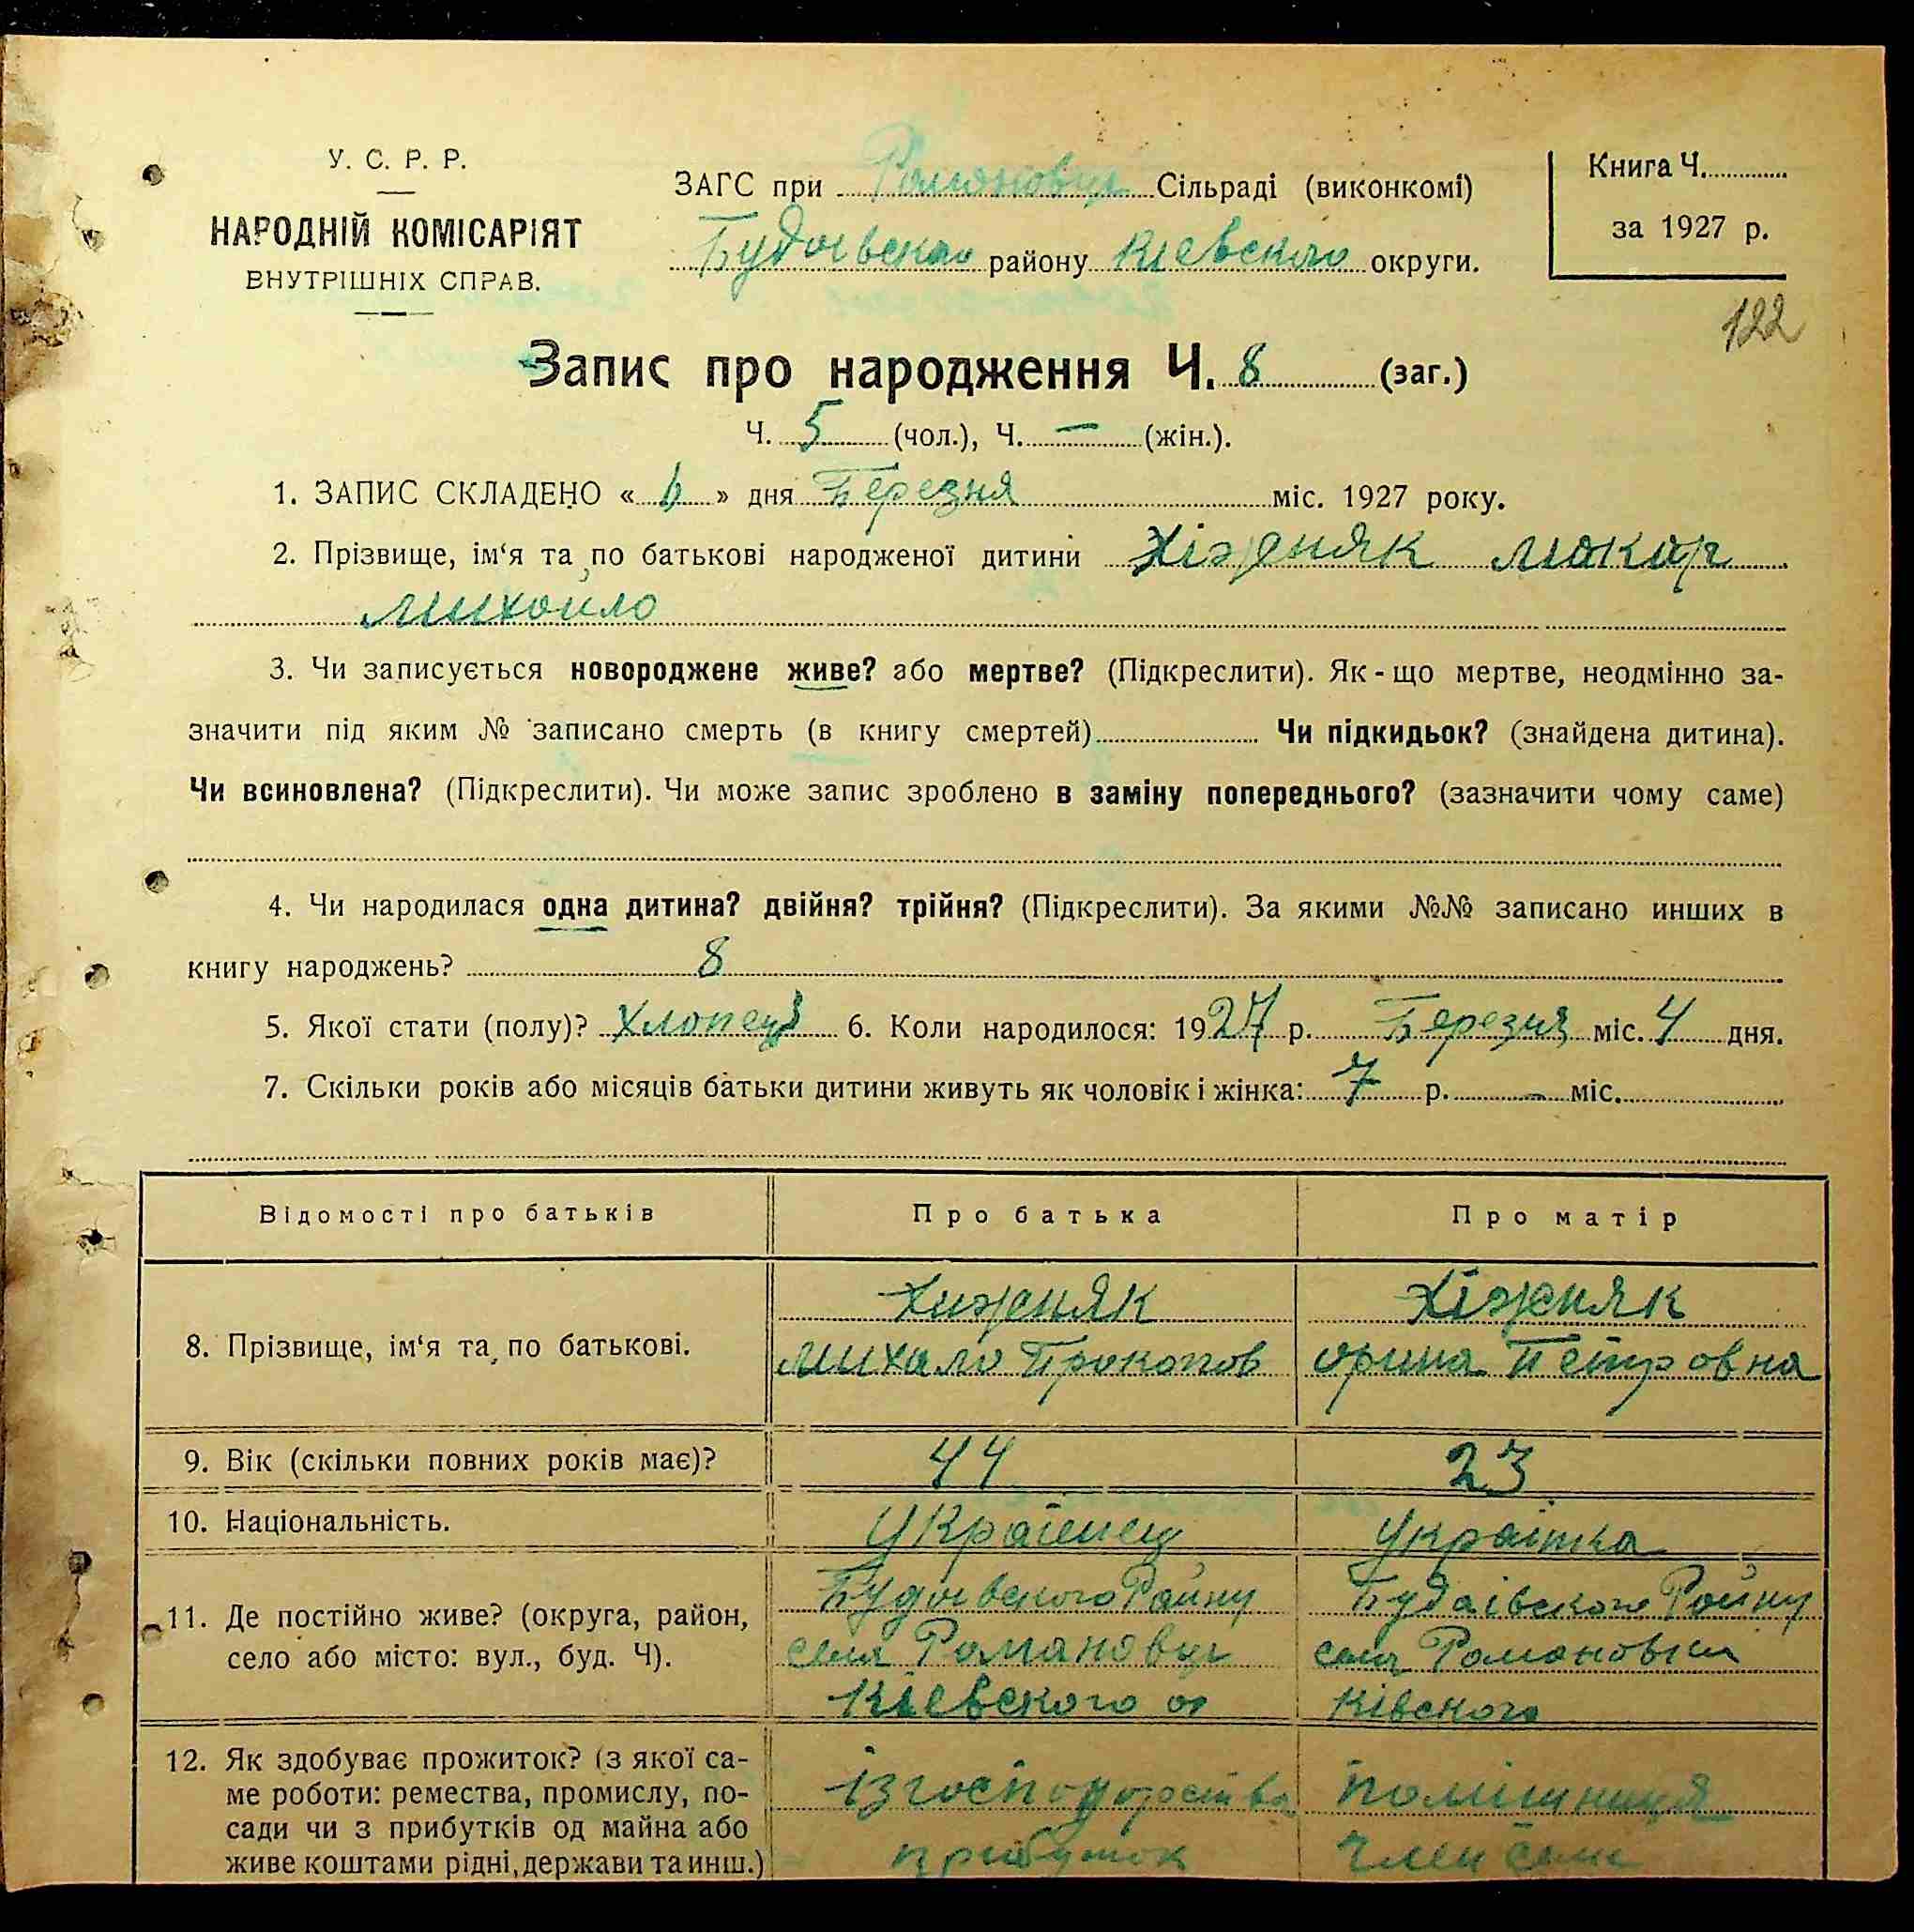 У. С. Р. Р.
НАРОДНІЙ КОМІСАРІЯТ
ВНУТРІШНІХ СПРАВ.
ЗАГС при Романовці Сільраді (виконкомі)
району Кіевского округи.
Книга Ч.
за 1927 р.
122
Запис про народження Ч. 8 (заг.)
Ч. 5 (чол.), Ч. — (жін.).
1. ЗАПИС СКЛАДЕНО « 6 » дня Березня міс. 1927 року.
2. Прізвище, ім‘я та по батькові народженої дитини Хіжняк Макар
Михаило
3. Чи записується новороджене живе? або мертве? (Підкреслити). Як-що мертве, неодмінно за-
значити під яким № записано смерть (в книгу смертей) Чи підкидьок? (знайдена дитина).
Чи всиновлена? (Підкреслити). Чи може запис зроблено в заміну попереднього? (зазначити чому саме)
4. Чи народилася одна дитина? двійня? трійня? (Підкреслити). За якими №№ записано инших в
книгу народжень? 8
5. Якої стати (полу)? Хлопець 6. Коли народилося: 1927 р. Березня міс. 4 дня.
7. Скільки років або місяців батьки дитини живуть як чоловік і жінка: 7 р. – міс.
Відомості про батьків Про батька Про матір
8. Прізвище, ім‘я та по батькові.
Хижняк
Михало Прокопов
Хіжняк
Орина Петровна
9. Вік (скільки повних років має)? 44 23
10. Національність. Українец Українка
11. Де постійно живе? (округа, район,
село або місто: вул., буд. Ч).
Будаївского Району
села Романовци
Кіевского ок
Будаівского Району
села Романовки
Ківского
12. Як здобуває прожиток? (з якої са-
ме роботи: ремества, промислу, по-
сади чи з прибутків од майна або
живе коштами рідні, держави та инш.)
із господарства
прибуток
помішниця
член семі